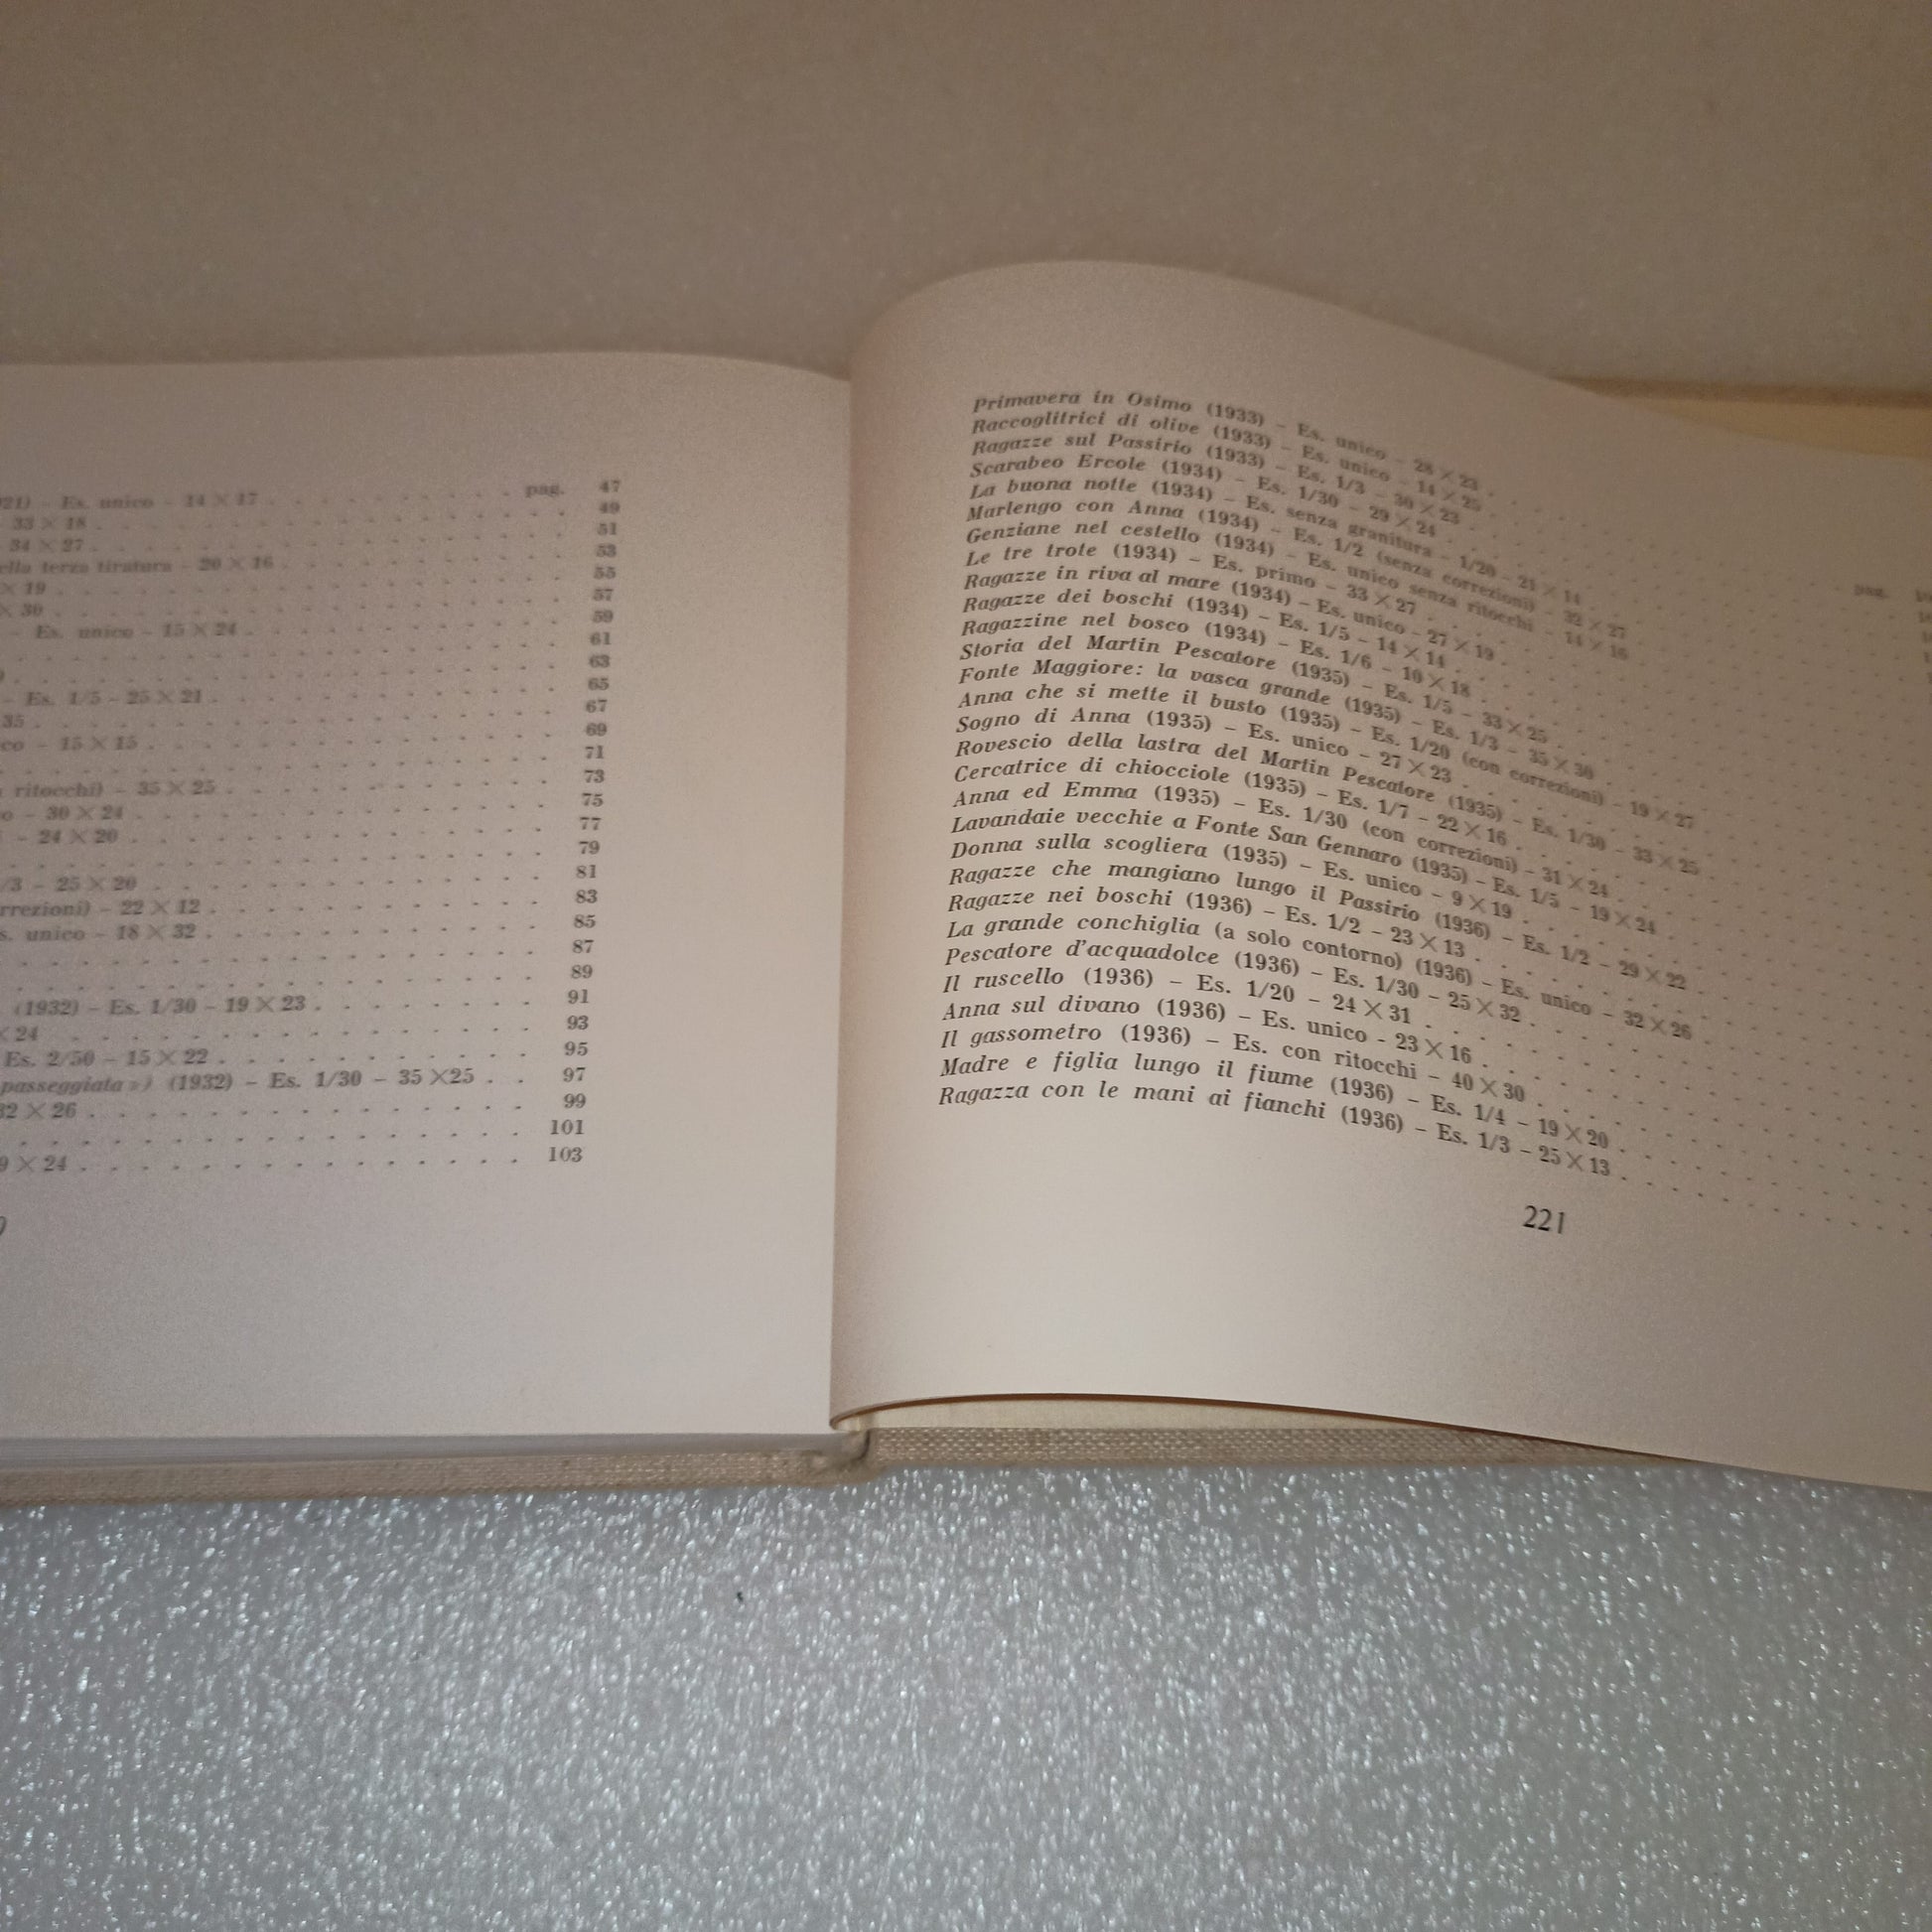 21) - Es. unico - 14 × 17 . . . . pag. 47
33 × 18 . . . . 49
34 × 27 . . . . 51
ella terza tiratura - 20 × 16 . . . . 53
× 19 . . . . 55
× 30 . . . . 57
- Es. unico - 15 × 24 . . . . 59
. . . . 61
. . . . 63
- Es. 1/5 - 25 × 21 . . . . 65
35 . . . . 67
co - 15 × 15 . . . . 69
. . . . 71
ritocchi) - 35 × 25 . . . . 73
o - 30 × 24 . . . . 75
- 24 × 20 . . . . 77
. . . . 79
/3 - 25 × 20 . . . . 81
rrezioni) - 22 × 12 . . . . 83
s. unico - 18 × 32 . . . . 85
. . . . 87
. . . . 89
(1932) - Es. 1/30 - 19 × 23 . . . . 91
× 24 . . . . 93
Es. 2/50 - 15 × 22 . . . . 95
passeggiata ») (1932) - Es. 1/30 - 35 ×25 . . 97
32 × 26 . . . . 99
. . . . 101
9 × 24 . . . . 103
Primavera in Osimo (1933) - Es. unico - 28 × 23 . . . . pag.
Raccoglitrici di olive (1933) - Es. unico - 14 × 25
Ragazze sul Passirio (1933) - Es. 1/3 - 30 × 23
Scarabeo Ercole (1934) - Es. 1/30 - 29 × 24
La buona notte (1934) - Es. senza granitura - 1/20 - 21 × 14
Marlengo con Anna (1934) - Es. 1/2 (senza correzioni) - 32 × 27
Genziane nel cestello (1934) - Es. unico senza ritocchi - 14 × 16
Le tre trote (1934) - Es. primo - 33 × 27
Ragazze in riva al mare (1934) - Es. unico - 27 × 19
Ragazze dei boschi (1934) - Es. 1/5 - 14 × 14
Ragazzine nel bosco (1934) - Es. 1/6 - 10 × 18
Storia del Martin Pescatore (1935) - Es. 1/5 - 33 × 25
Fonte Maggiore: la vasca grande (1935) - Es. 1/3 - 35 × 30
Anna che si mette il busto (1935) - Es. 1/20 (con correzioni) - 19 × 27
Sogno di Anna (1935) - Es. unico - 27 × 23
Rovescio della lastra del Martin Pescatore (1935) - Es. 1/30 - 33 × 25
Cercatrice di chiocciole (1935) - Es. 1/7 - 22 × 16
Anna ed Emma (1935) - Es. 1/30 (con correzioni) - 31 × 24
Lavandaie vecchie a Fonte San Gennaro (1935) - Es. 1/5 - 19 × 24
Donna sulla scogliera (1935) - Es. unico - 9 × 19
Ragazze che mangiano lungo il Passirio (1936) - Es. 1/2 - 29 × 22
Ragazze nei boschi (1936) - Es. 1/2 - 23 × 13
La grande conchiglia (a solo contorno) (1936) - Es. unico - 32 × 26
Pescatore d'acquadolce (1936) - Es. 1/30 - 25 × 32
Il ruscello (1936) - Es. 1/20 - 24 × 31
Anna sul divano (1936) - Es. unico - 23 × 16
Il gassometro (1936) - Es. con ritocchi - 40 × 30
Madre e figlia lungo il fiume (1936) - Es. 1/4 - 19 × 20
Ragazza con le mani ai fianchi (1936) - Es. 1/3 - 25 × 13
221